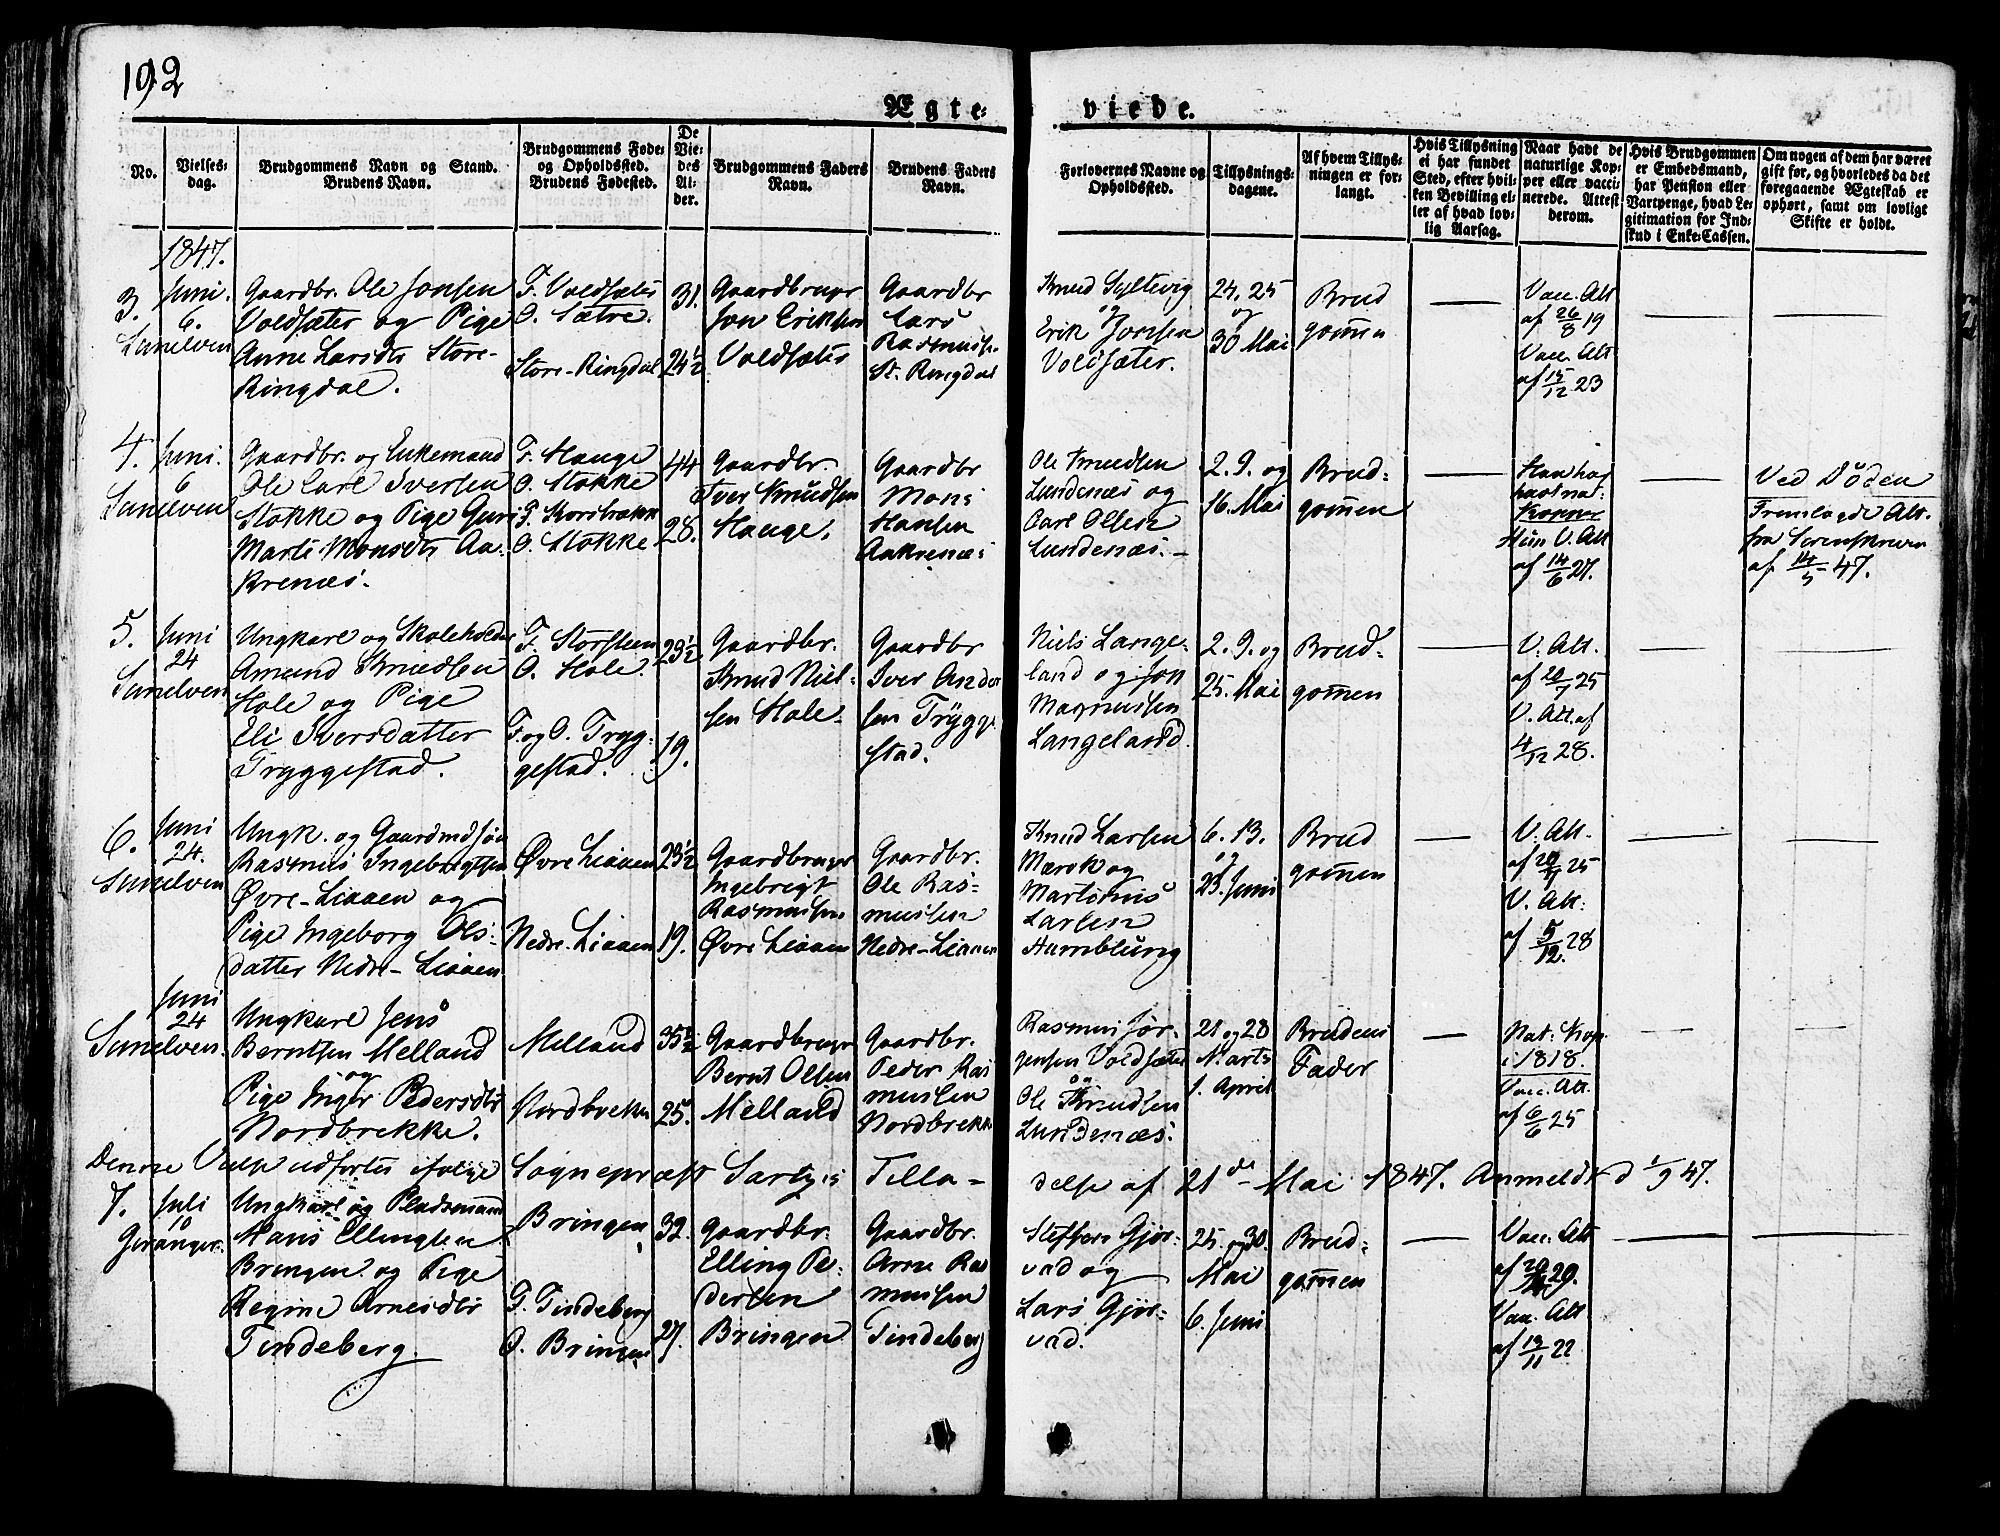 192
Ægte- viede.
No.
Vielses-
dag.
Brudgommens Navn og Stand.
Brudens Navn.
Brudgommens Føde-
og Opholdssted.
Brudens Fødested.
De
Vie-
des
Al-
der.
Brudgommens Faders
Navn.
Brudens Faders
Navn.
Forlovernes Navne og
Opholdssted.
Tillysnings-
dagene.
Af hvem Tillys-
ningen er for-
langt.
Hvis Tillysning
ei har fundet
Sted, efter hvil-
ken Bevilling el-
ler af hvad lov-
lig Aarsag.
Naar havt de
naturlige Kop-
per eller vacci-
nerede. Attest
derom.
Hvis Brudgommen
er Embedsmand,
har Pension eller
Vartpenge, hvad Le-
gitimation for Ind-
skud i Enke-Cassen.
Om nogen af dem har været
gift før, og hvorledes da det
foregaaende Ægteskab er
ophørt, samt om lovligt
Skifte er holdt.
1847.
3.
Juni.
6.
Sunelven
Gaardbr. Ole Jonsen
Voldsæter og Pige
Anne Larsdtr Store-
Ringdal.
F. Voldsæter
O. Sætre.
Store-Ringdal
31.
24½
Gaardbruger
Jon Eriksen
Voldsæter
Gaardbr
Lars
Rasmuss.
St. Ringdal
Knud Syltevig
og
Erik Jonsen
Voldsæter.
24, 25
og
30 Mai
Brud
gom̄en
Vac. Att
af 26/8 19
Vacc. Att
af 15/12 23
4.
Juni.
6
Sunelven
Gaardbr. og Enkemand
Ole Carl Iversen
Stokke og Pige Guri
Marte Monsdtr Aa-
krenæs.
F. Hauge
O. Stokke
O. Stokke
44
28.
Gaardbr.
Iver Knudsen
Hauge.
Gaardbr
Mons
Hansen
Aakrenæs
Ole Knudsen
Lundenæs og
Carl Olsen
Lundenæs.
2. 9. og
16. Mai
Brud-
gom̄en
Han har
havt nat.
Kopper
Hun V. Att
af 14/6 27.
Ved Døden
Fremlagde Att.
fra Sorenskriver
af 14/5 47.
5.
Juni
24
Sunelven
Ungkarl og Skoleholder
Amund Knudsen
Hole og Pige
Eli Iversdatter
Tryggestad.
F. Storsteen
O. Hole.
F. og O. Tryg-
gestad.
23½
19.
Gaardbr.
Knud Niel-
sen Hole.
Gaardbr
Iver Ander
sen Trygge
stad.
Niels Lange-
land og Jon
Magnussen
Langeland.
2. 9. og
25. Mai
Brud-
gom̄en
V. Att.
af 20/7 25
V. Att. af
4/12 28.
6.
Juni
24.
Sunelven
Ungk. og Gaardmdsøn
Rasmus Ingebrigtsen
Øvre-Liaaen og
Pige Ingeborg Ols-
datter Nedre-Liaaen
Øvre Liaaen
Nedre-Liaaen
23½
19.
Gaardbruger
Ingebrigt
Rasmussen
Øvre Liaaen
Gaardbr.
Ole Ras-
mussen
Nedre-Liaaen
Knud Larsen
Mærok og
Martinus
Larsen
Humblung
6. 13.
og
23. Juni
Brud
gom̄en
V. Att.
V. Att.
af 5/12 28
Juni
24
Sunelven.
Ungkarl Jens
Berntsen Melland
og
Pige Inger Pedersdtr
Nordbrekke.
Melland
Nordbrekke
35½
25.
Gaardbruger
Bernt Olsen
Melland
Gaardbr.
Peder Ras
mussen
Nordbrekk
Rasmus Jør-
gensen Voldsæter
og
Ole Knudsen
Lundenæs.
21 og 28
Marts
1. April
Brudens
Fader
Nat. Kop.
i 1818.
Vac. Att.
af 6/6 25
Denne Vielse udførtes ifølge Sognepræst Tilla- delse af 21de Mai 1847. Anmeldt d 1/9 47.
7.
Juli
10
Geranger.
Ungkarl og Pladsmand
Hans Ellingsen
Bringen og Pige
Regine Arnesdtr
Tindeberg.
Bringen
F. Tindeberg
O. Bringen
32.
27.
Gaardbr.
Elling Pe-
dersen
Bringen
Gaardbr.
Arne Ras
mussen
Tindeberg
Steffen Gjør-
vad og
Lars Gjør-
vad.
25. og 30.
Mai
6. Juni
Brud-
gom̄en
Vac. Att
Vac. Att
af 13/11 22